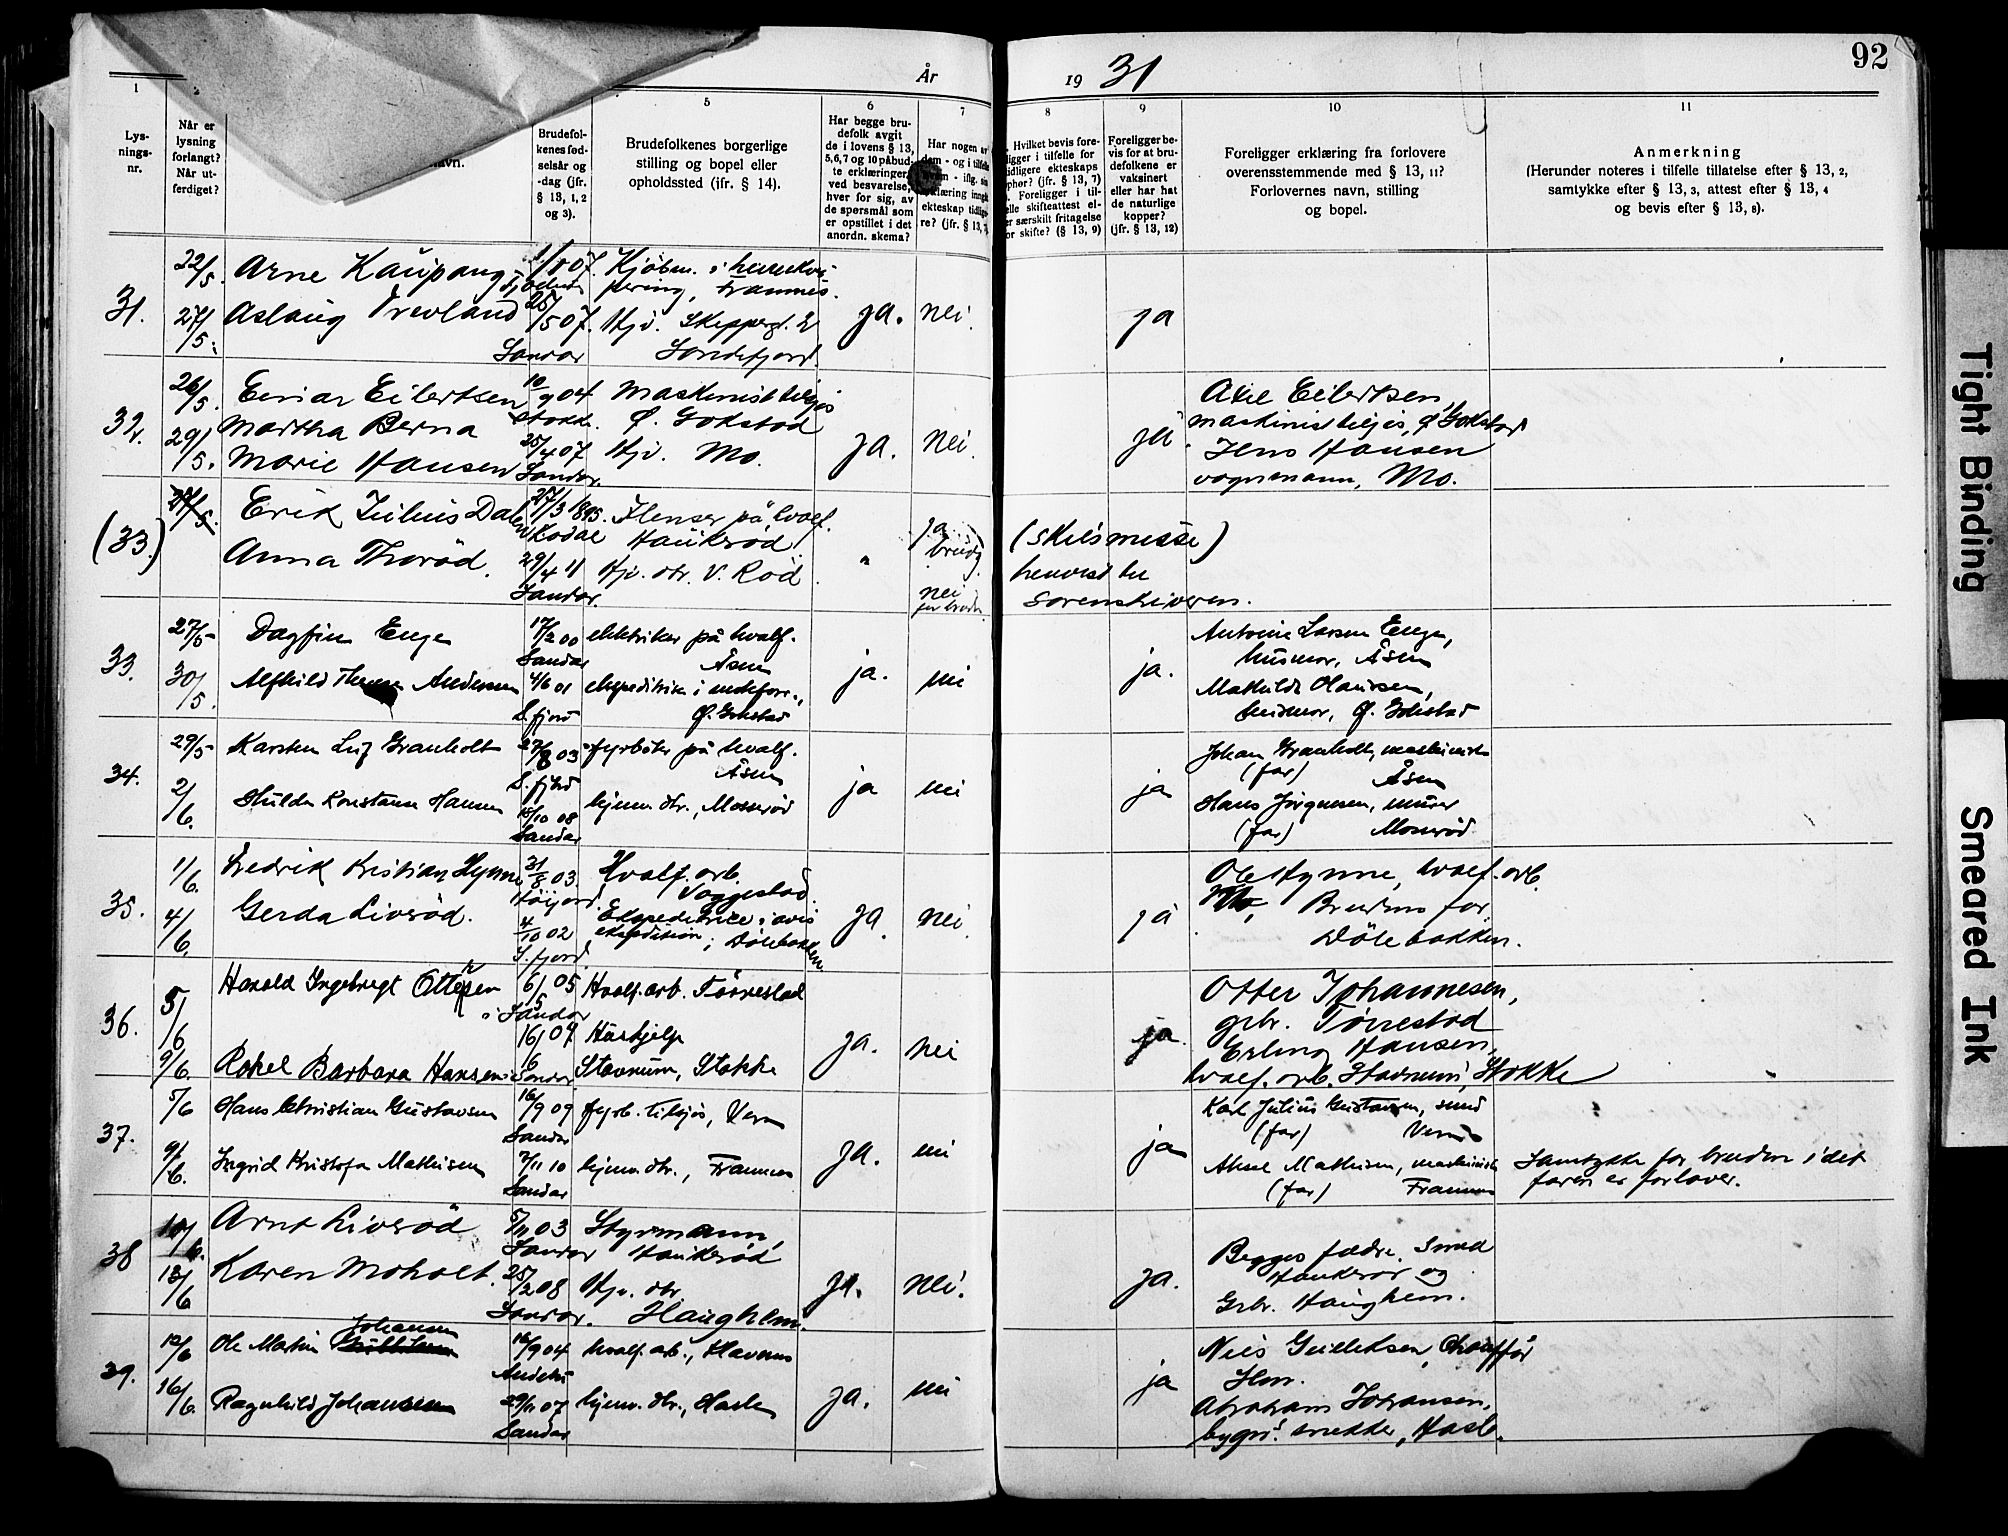 92
År
19 31
1
5
6
7
8
9
10
11
Lys-
nings-
nr.
Når er
lysning
forlangt?
Når ut-
ferdiget?
Brudefol-
kenes fød-
selsår og
-dag (jfr.
§ 13, 1, 2
og 3).
Brudefolkenes borgerlige
stilling og bopel eller
opholdssted (ifr. § 14).
Har begge bru-
defolk avgit
de i lovens § 13,
5,6,7 og 10 påbud-
te erklæringer,
ved besvarelse,
hver for sig, av
de spørsmål som
er opstillet i det
anordn. skema?
Har nogen av
dem - og i tilfelle
- iflg. sin
erklæring inngått
ekteskap tidlige-
re? (jfr. § 13,
Hvilket bevis fore-
ligger i tilfelle for
tidligere ekteskaps
ophør? (jfr. § 13, 7)
Foreligger i til-
felle skifteattest el-
er særskilt fritagelse
for skifte? (§ 13, 9)
Foreligger be-
vis for at bru-
defolkene er
vaksinert
eller har hat
de naturlige
kopper?
(jfr. § 13, 12)
Foreligger erklæring fra forlovere
overensstemmende med § 13, 11?
Forlovernes navn, stilling
og bopel.
Anmerkning
(Herunder noteres i tilfelle tillatelse efter § 13, 2,
samtykke efter § 13, 3, attest efter § 13, 4
og bevis efter § 13, 8).
31.
22/5.
27/5.
Arne Kaupang
Aslaug Trevland
1/8 07.
25/5 07.
Sandar
Kjøbm. i herrekvi-
pering, Framnes.
Hjv. Skipperg. 2
Sandefjord.
ja. nei.
ja
32.
26/5.
29/5.
Einar Eilertsen
Martha Berna
Marie Hansen
10/9 04
Stokke.
25/4 07
Sandar.
Maskinist tilsjøs
Ø. Gokstad
Hjv. Mo.
ja. nei.
ja.
Axel Eilertsen,
maskinist tilsjøs, Ø Gokstad
Jens Hansen
vognmann, Mo.
(33.)
27/5.
Erik Julius Dalen
Anna Thorød.
27/3 1895.
Kodal
29/4 11
Sandar.
Flenser på hvalf.
Haukerød
Hjv. dtr. V. Rød.
"
ja
brudg
nei
for bruden
(skilsmisse)
henvist til
sorenskriveren.
33.
27/5
30/5.
Dagfin Enge
Alfhild Andersen
17/2 00
Sandar
4/6 01
S.fjord
elektriker på hvalf.
Åsen
ekspeditrise i
Ø. Gokstad
ja. nei
ja.
Antoine Larsen Enge,
husmor, Åsen
Mathilde Hansen,
husmor, Ø. Gokstad
34.
29/5
2/6.
Karsten Granholt
Hulda Konstanse Hansen
27/8 03
S. fjord
15/10 08
Sandar
fyrbøter på hvalf.
Åsen
hjemv. dtr., Moserød
ja nei
ja
Johan Granholt, maskinist
(far) Åsen
Hans Jørgensen, murer
(far) Moserød
35.
1/6.
4/6.
Fredrik Kristian Hynne
Gerda Livsrød.
31/8 03.
Høijord.
4/10 02
S. fjord.
Hvalf. arb.
Vaggestad.
Ekspeditrice i avis
ekspedition, Dølebakken
ja. nei.
ja
Ole Hynne, hvalf. arb.
Brudens far,
Dölebakken.
36.
5/6
9/6.
Harald Ingebregt Ottersen
Rakel Barbara Hansen
6/5 05
i Sandar
16/6 07
Sandar.
Hvalf. arb. Tørrestad
Hushjelp
Stavnum, Stokke
ja. nei
ja.
Otter Johannesen,
grbr. Tørrestad
Erling Hansen,
hvalf. arb. Stavnum, Stokke
37.
5/6
9/6.
Hans Christian Gustavsen
Ingrid Kristofa Mathisen
16/9 09
Sandar
7/11 10
Sandar
fyrb. tilsjøs, Vera
hjemv. dtr., Framnes
ja. nei
ja
Karl Julius Gustavsen, smed
(far)
Mathisen, maskinist
(far) Framnes
Samtykke for bruden i det
faren er forlover.
38
10/6.
13/6
Arne Livsrød
Karen Moholt.
5/11 03
Sandar
25/2 08
Sandar.
Styrmann,
Haukerød
Hjv. dtr.
Haughem.
ja. nei.
ja.
Begges fædre. Smed
Haukerød og
Grbr. Haughem.
39.
12/6
16/6.
Ole Martin Johansen
Ragnhild Johansen
16/9 04
29/11 07
Sandar
hvalf. arb., Haverns
hjemv. dtr., Hasle
ja. nei
ja
Nils Gulliksen, Chauffør
Abraham Johansen,
bygn. snekker, Hasle.
Tight Binding
Smeared Ink